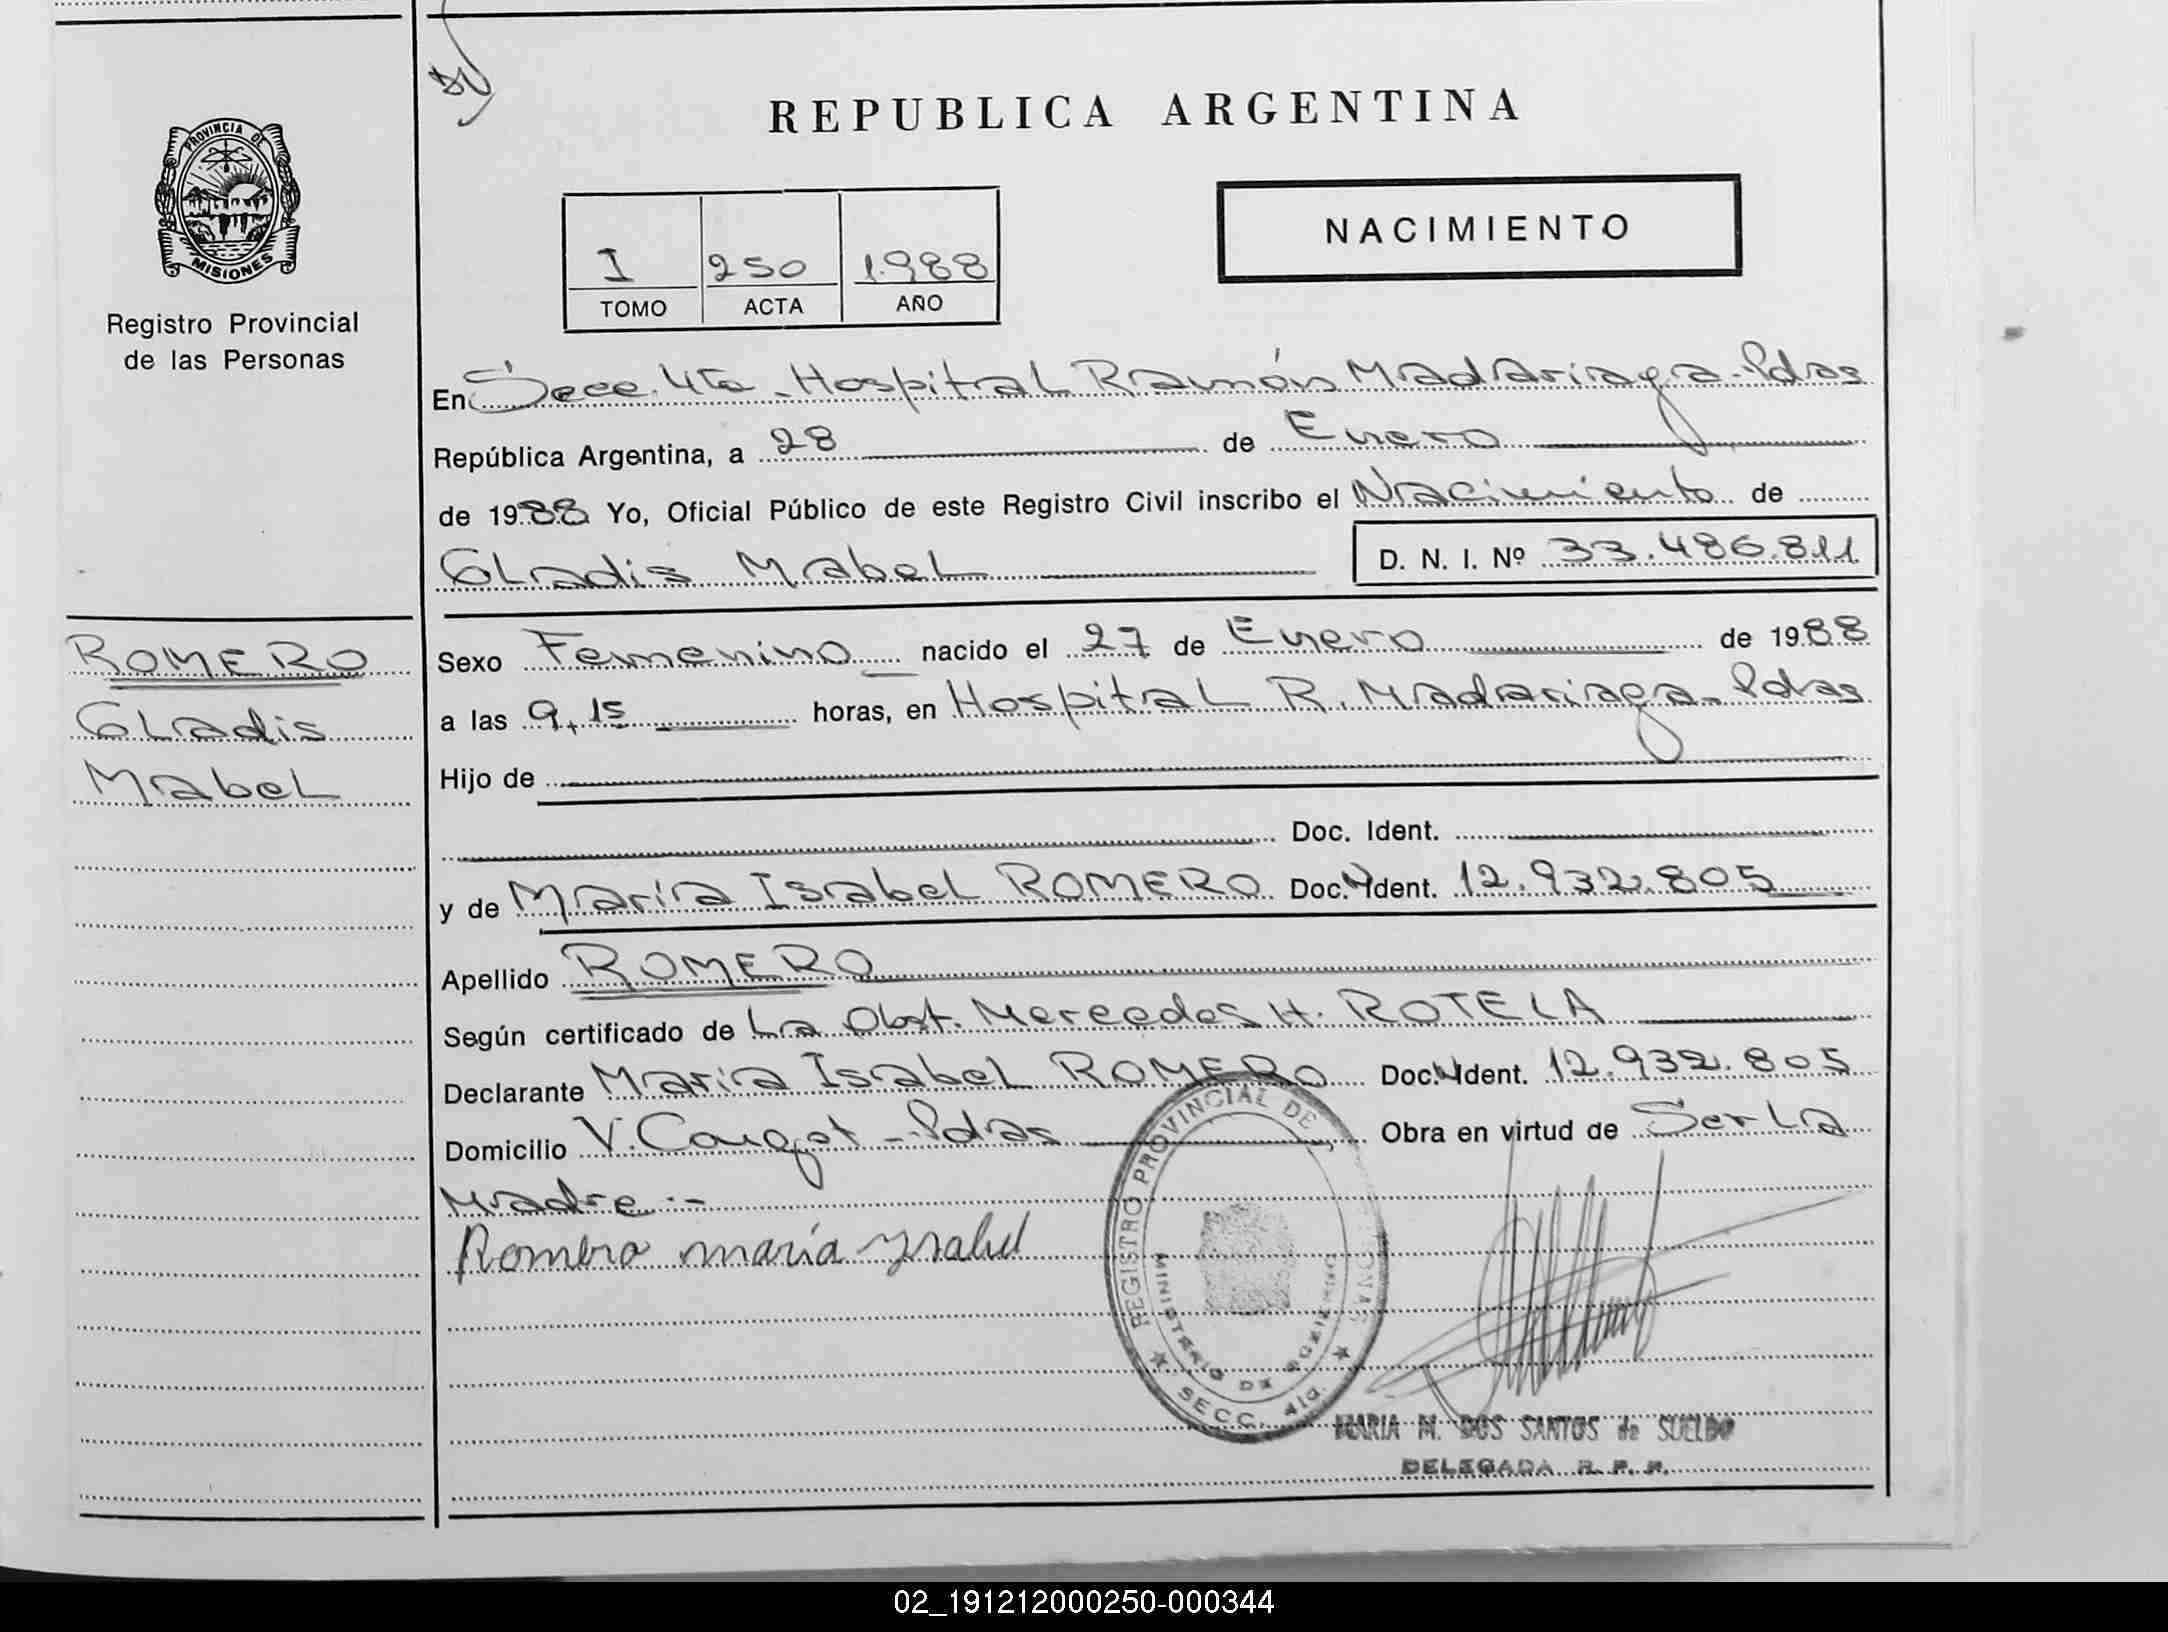 REPUBLICA ARGENTINA
PROVINCIA DE
MISIONES
Registro Provincial
de las Personas
NACIMIENTO
I 250 1.988
TOMO ACTA AÑO
En Secc. 4ta - Hospital Ramón Madariaga - Pdas
República Argentina, a 28 de Enero
de 1988 Yo, Oficial Público de este Registro Civil inscribo el Nacimiento de
Gladis Mabel D. N. I. Nº 33.486.811
ROMERO
Gladis
Mabel
Sexo Femenino nacido el 27 de Enero de 1988
a las 9,15 horas, en Hospital R. Madariaga - Pdas
Hijo de
Doc. Ident.
y de María Isabel ROMERO Doc. Ident. 12.932.805
Apellido ROMERO
Según certificado de La Obst. Mercedes H. ROTELA
Declarante María Isabel ROMERO Doc. Ident. 12.932.805
Domicilio V. Cougot - Pdas Obra en virtud de Ser La
Madre :-
Romero maría Ysabel
REGISTRO PROVINCIAL DE
MINISTERIO DE GOBIERNO
SECC. 4ta.
MARIA M. DOS SANTOS de SUELDO
DELEGADA R. P. P.
02_191212000250-000344